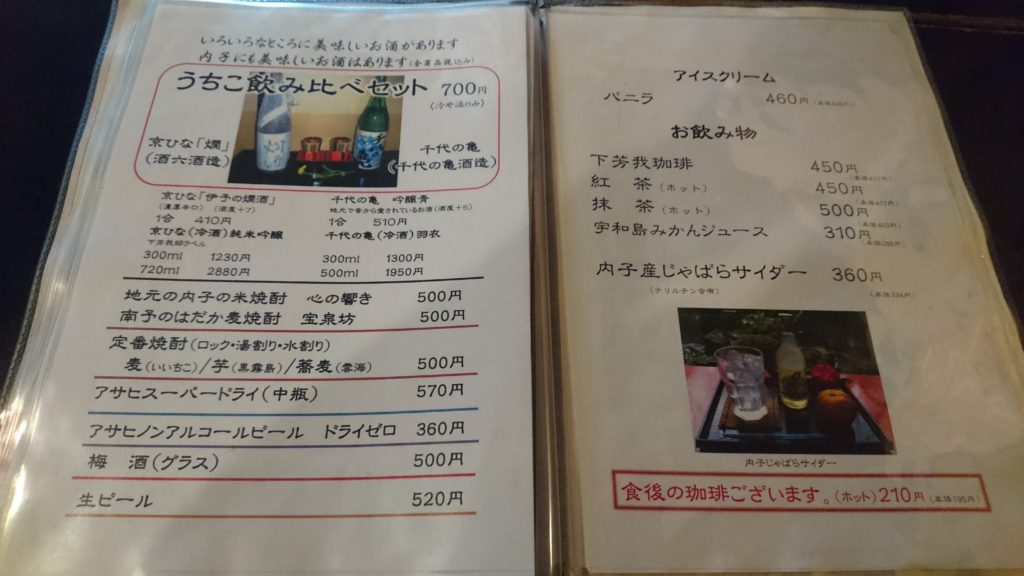 いろいろなところに美味しいお酒があります
内子にも美味しいお酒はあります(全商品税込み)
うちこ飲み比べセット 700円
(冷や酒のみ)
京ひな「燗」
(酒六酒造)
千代の亀
(千代の亀酒造)
京ひな「伊予の燗酒」
(濃厚辛口) (酒度+7)
1合 410円
京ひな(冷酒)純米吟醸
下芳我邸ラベル
300ml 1230円
720ml 2880円
千代の亀 吟醸青
地元で昔から愛されているお酒(酒度+5)
1合 510円
千代の亀(冷酒)羽衣
300ml 1300円
500ml 1950円
地元の内子の米焼酎 心の響き 500円
南予のはだか麦焼酎 宝泉坊 500円
定番焼酎(ロック・湯割り・水割り)
麦(いいちこ)/芋(黒霧島)/蕎麦(雲海) 500円
アサヒスーパードライ(中瓶) 570円
アサヒノンアルコールビール ドライゼロ 360円
梅 酒(グラス) 500円
生ビール 520円
アイスクリーム
バニラ 460円
お飲み物
下芳我珈琲 450円
(本体417円)
紅 茶(ホット) 450円
(本体417円)
抹 茶(ホット) 500円
(本体463円)
宇和島みかんジュース 310円
(本体288円)
内子産じゃばらサイダー 360円
(ナリルチン含有) (本体334円)
内子じゃばらサイダー
食後の珈琲ございます。(ホット)210円(本体195円)